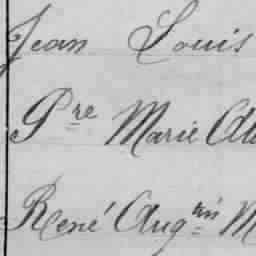 Jean Louis
Pre Marie
René Augtin